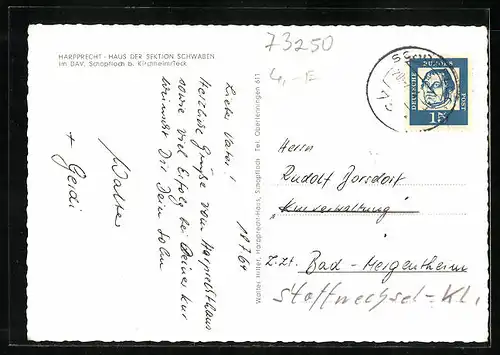 HARPPRECHT - HAUS DER SEKTION SCHWABEN
im DAV, Schopfloch b. Kirchheim/Teck
73250
4,-E
DEUTSCHE BUNDESPOST
15
Walter Hiller, Harpprecht-Haus, Schopfloch Tel. Oberlenningen 611
18.7.64
Lieber Vater!
Herzliche Grüße vom Harpprechthaus
sowie viel Erfolg bei Deiner Kur
wünscht Dir Dein Sohn
Walter
+ Gerdi
Herrn
Rudolf Jorsdorf
"Kurverwaltung"
z.Zt. Bad-Mergentheim
Stoffwechsel-Kl.